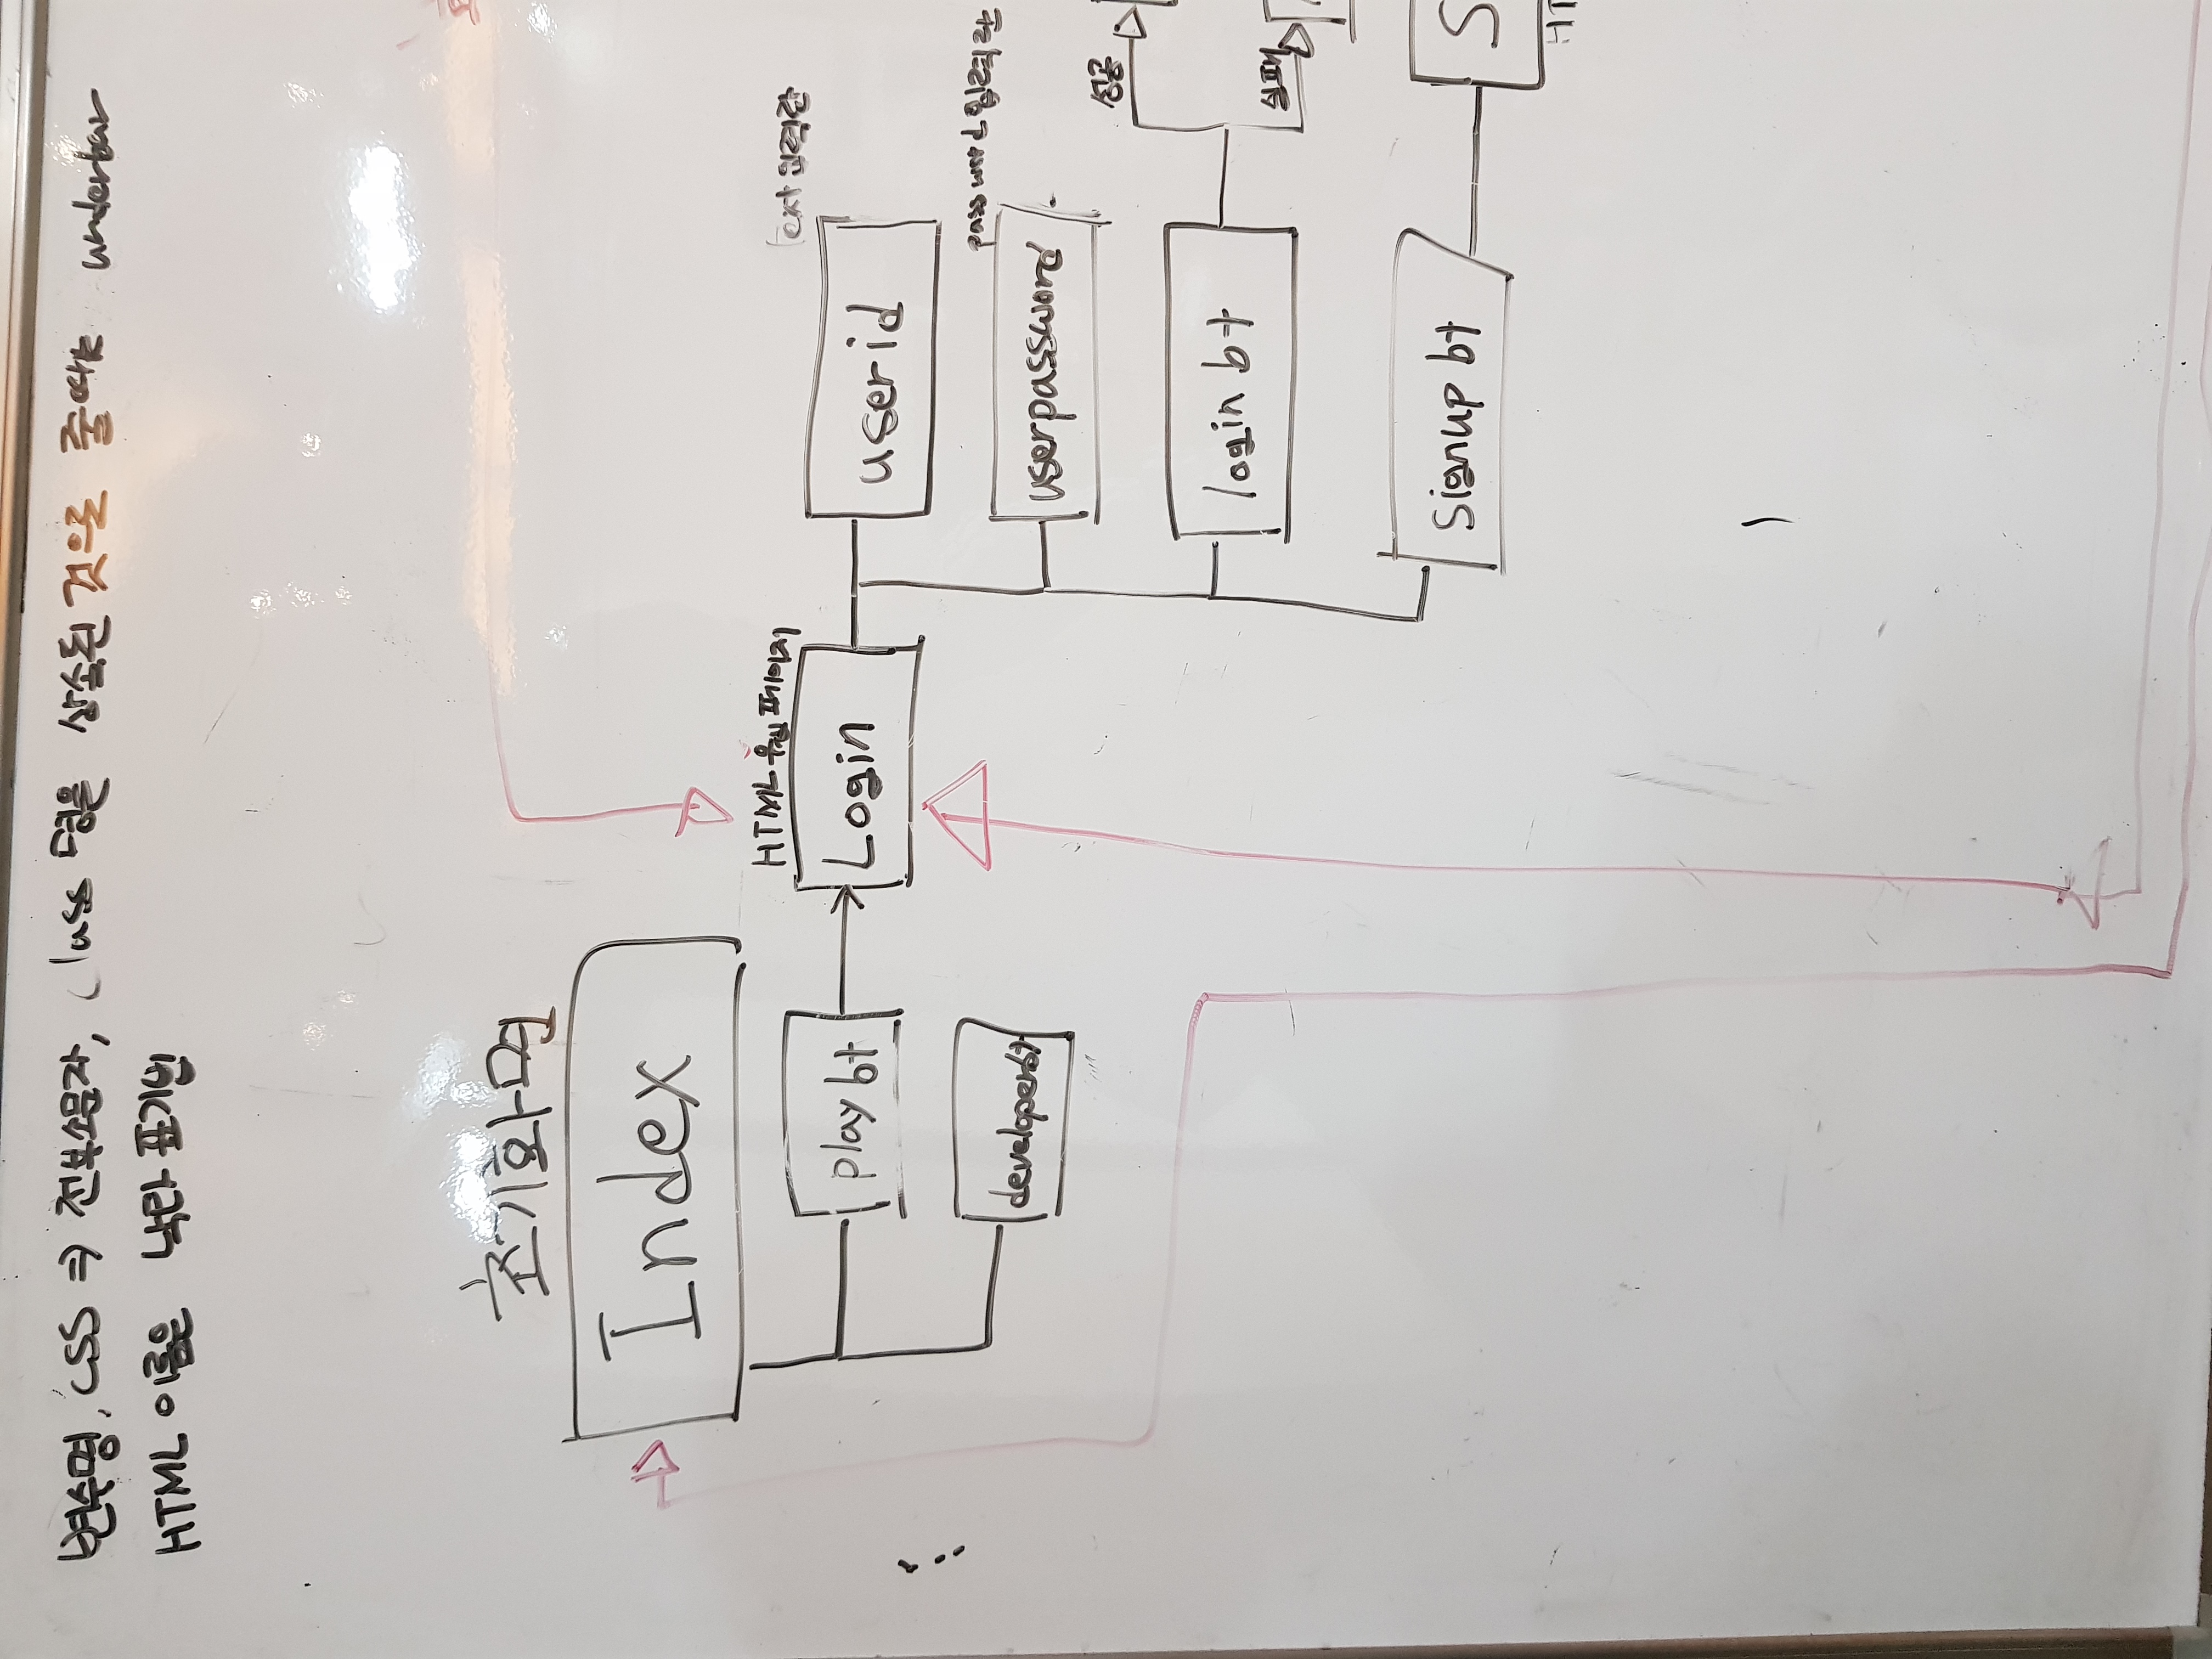 변수명, CSS ⇒ 전부소문자, Class 명은 상속된 것으로 줄때는 underbar
HTML 이름은 낙타 표기법
초기화면
Index
play bt
developerbt
HTML 웹페이지
Login
text 입력란
userid
password 입력란
userpassword
login bt
성공
실패
signup bt
S
HT